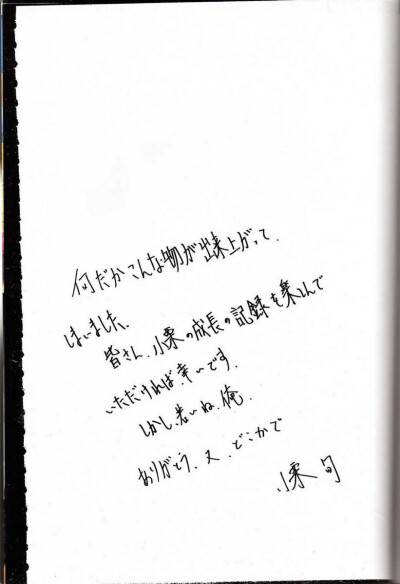 何だかこんな物が出来上がって、
しまいました、
皆さん、小栗の成長の記録を楽しんで
いただければ、幸いです。
しかし、若いね、俺、
ありがとう、又、どこかで
小栗 旬